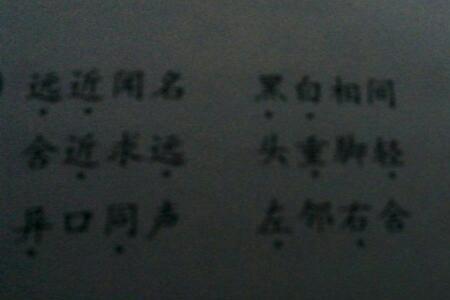 远近闻名 黑白相间
舍近求远 头重脚轻
异口同声 左邻右舍